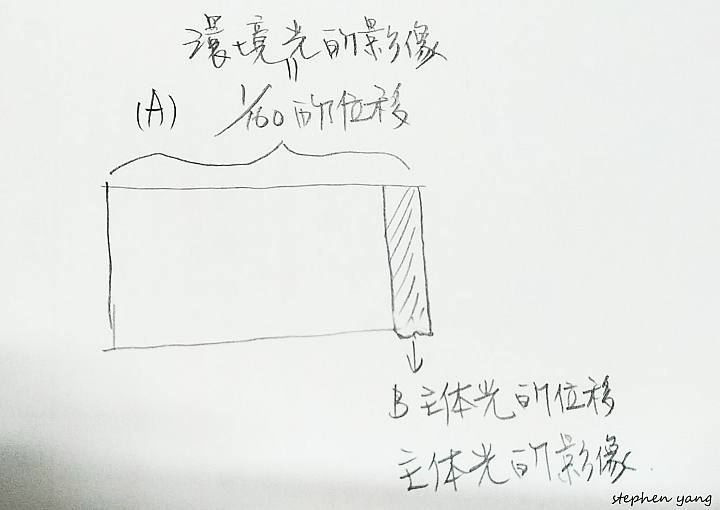 環境光的影像
(A) 1/160的位移
B 主体光的位移
主体光的影像.
stephen yang